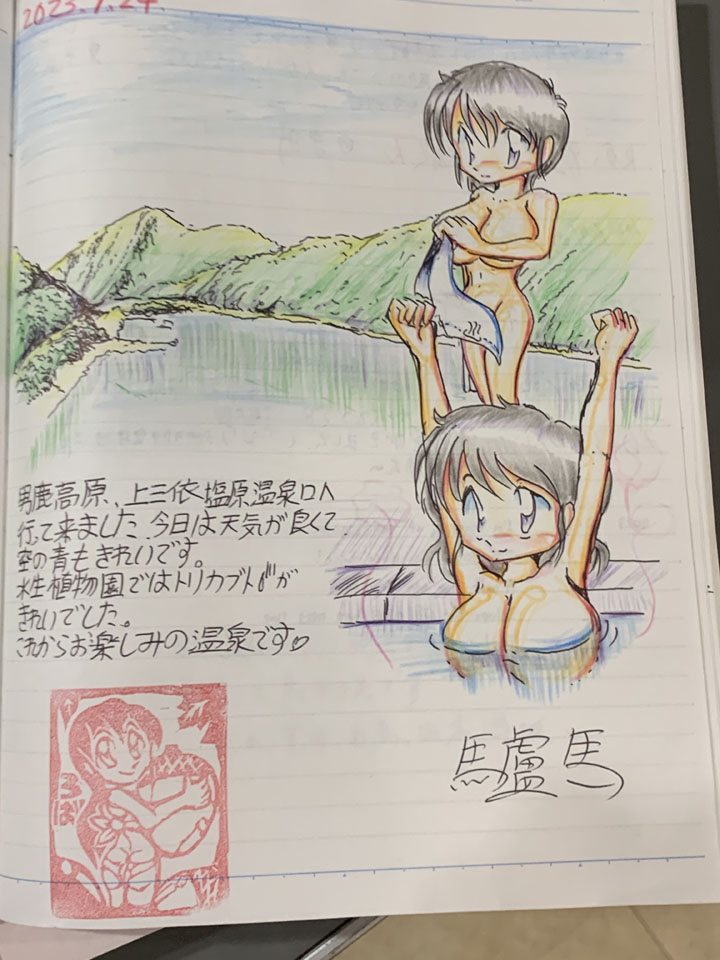 2023.9.24
男鹿高原、上三依塩原温泉口へ
行って来ました。今日は天気が良くて
空の青もきれいです。
水生植物園ではトリカブトが
きれいでした。
これからお楽しみの温泉です♡
驢馬
ろば